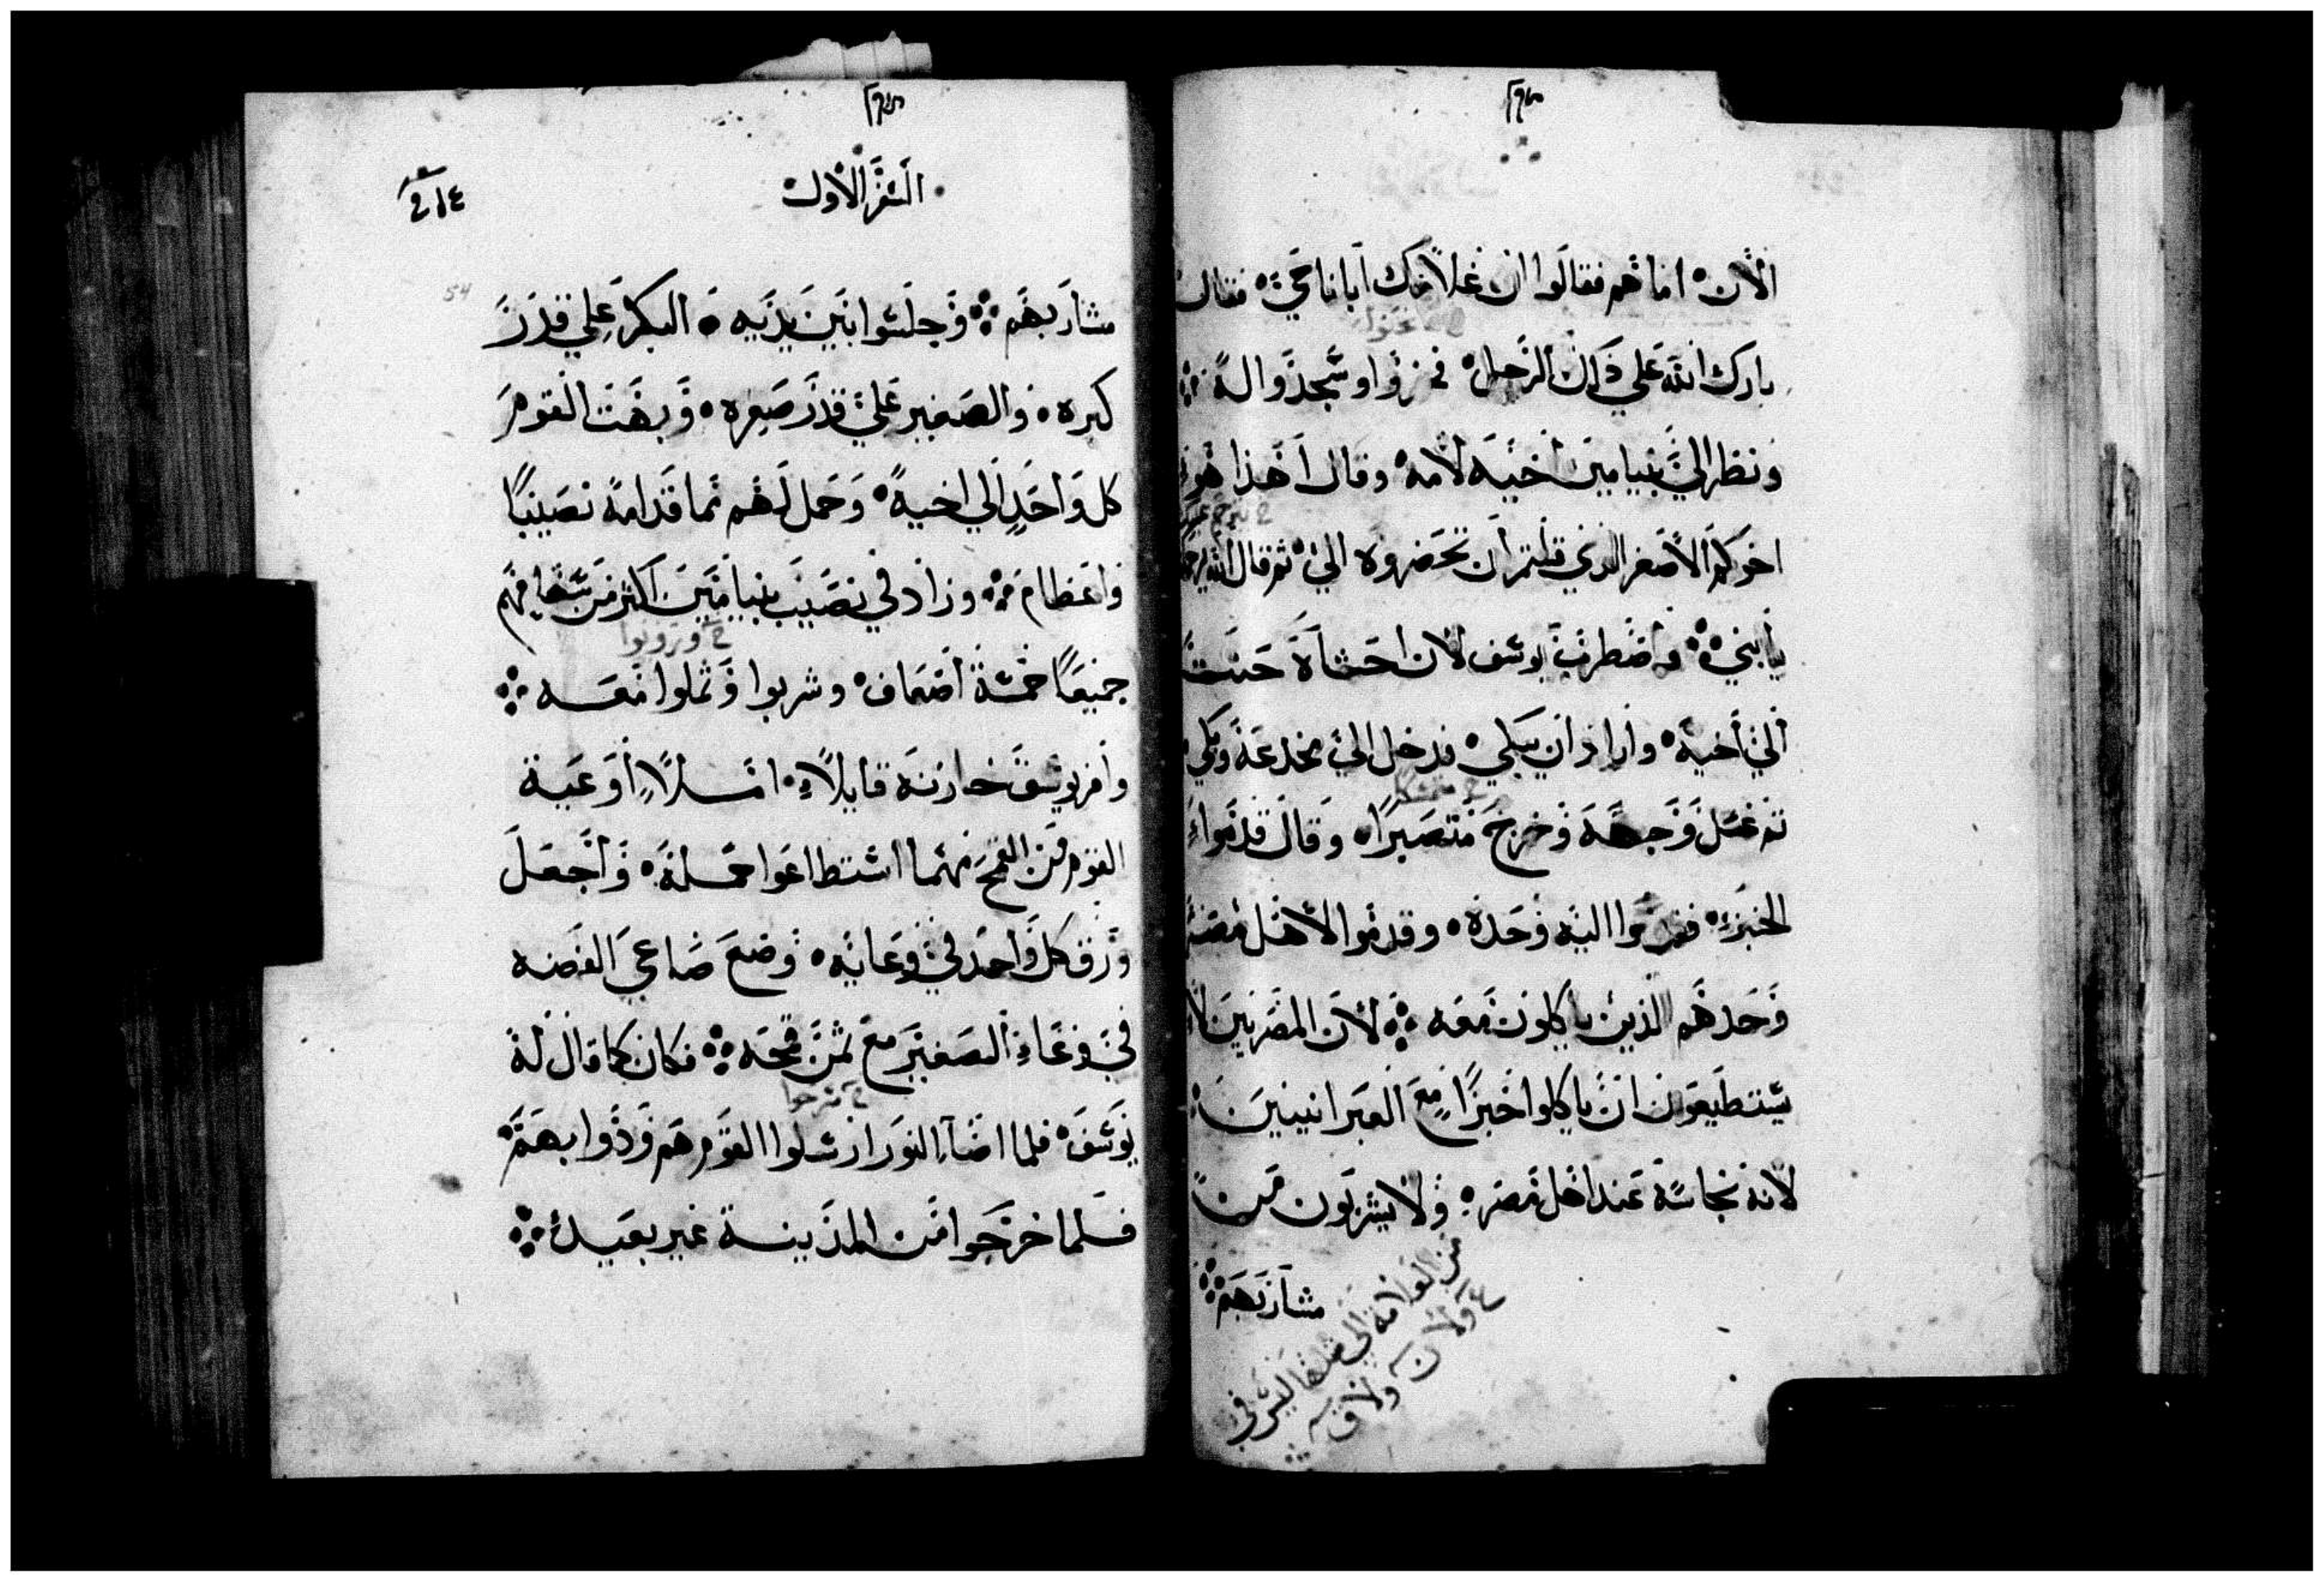 الآن اما هم فقالوا ان غلامك ابانا حي فقال
بارك الله علي ذاك الرجل فخروا وسجدوا له
ونظر الي بنيامين اخيه لامه وقال اهذا هو
اخوكم الاصغر الذي قلتم ان تحضروه الي ثم قال الله
يا بني واضطرب يوسف لان احشاه حنت
الي اخيه واراد ان يبكي فدخل الي مخدعه وبكي
ثم غسل وجهه وخرج متصبرا وقال قدموا
الخبز فقدموا اليه وحده وقدموا لاهل مصر
وحدهم الذين ياكلون معه لان المصريين لا
يستطيعون ان ياكلوا خبزا مع العبرانيين
لانه نجاسة عند اهل مصر ولا يشربون من
مشاربهم
السفر الاول
54
مشاربهم وجلسوا بين يديه البكر علي قدر
كبره والصغير علي قدر صغره وبهت القوم
كل واحد الي اخيه وحمل لهم مما قدامه نصيبا
واعطاهم وزاد في نصيب بنيامين اكثر من
جميعا خمسة اضعاف وشربوا وثملوا معه
وامر يوسف خازنه قايلا املا اوعية
القوم من القمح مهما استطاعوا حمله واجعل
ورق كل واحد في وعايه وضع صاعي الفضه
في وعاء الصغير مع ثمن قمحه فكان كما قال له
يوسف فلما اضاء النور ارسلوا القوم هم ودوابهم
فلما خرجوا من المدينة غير بعيد